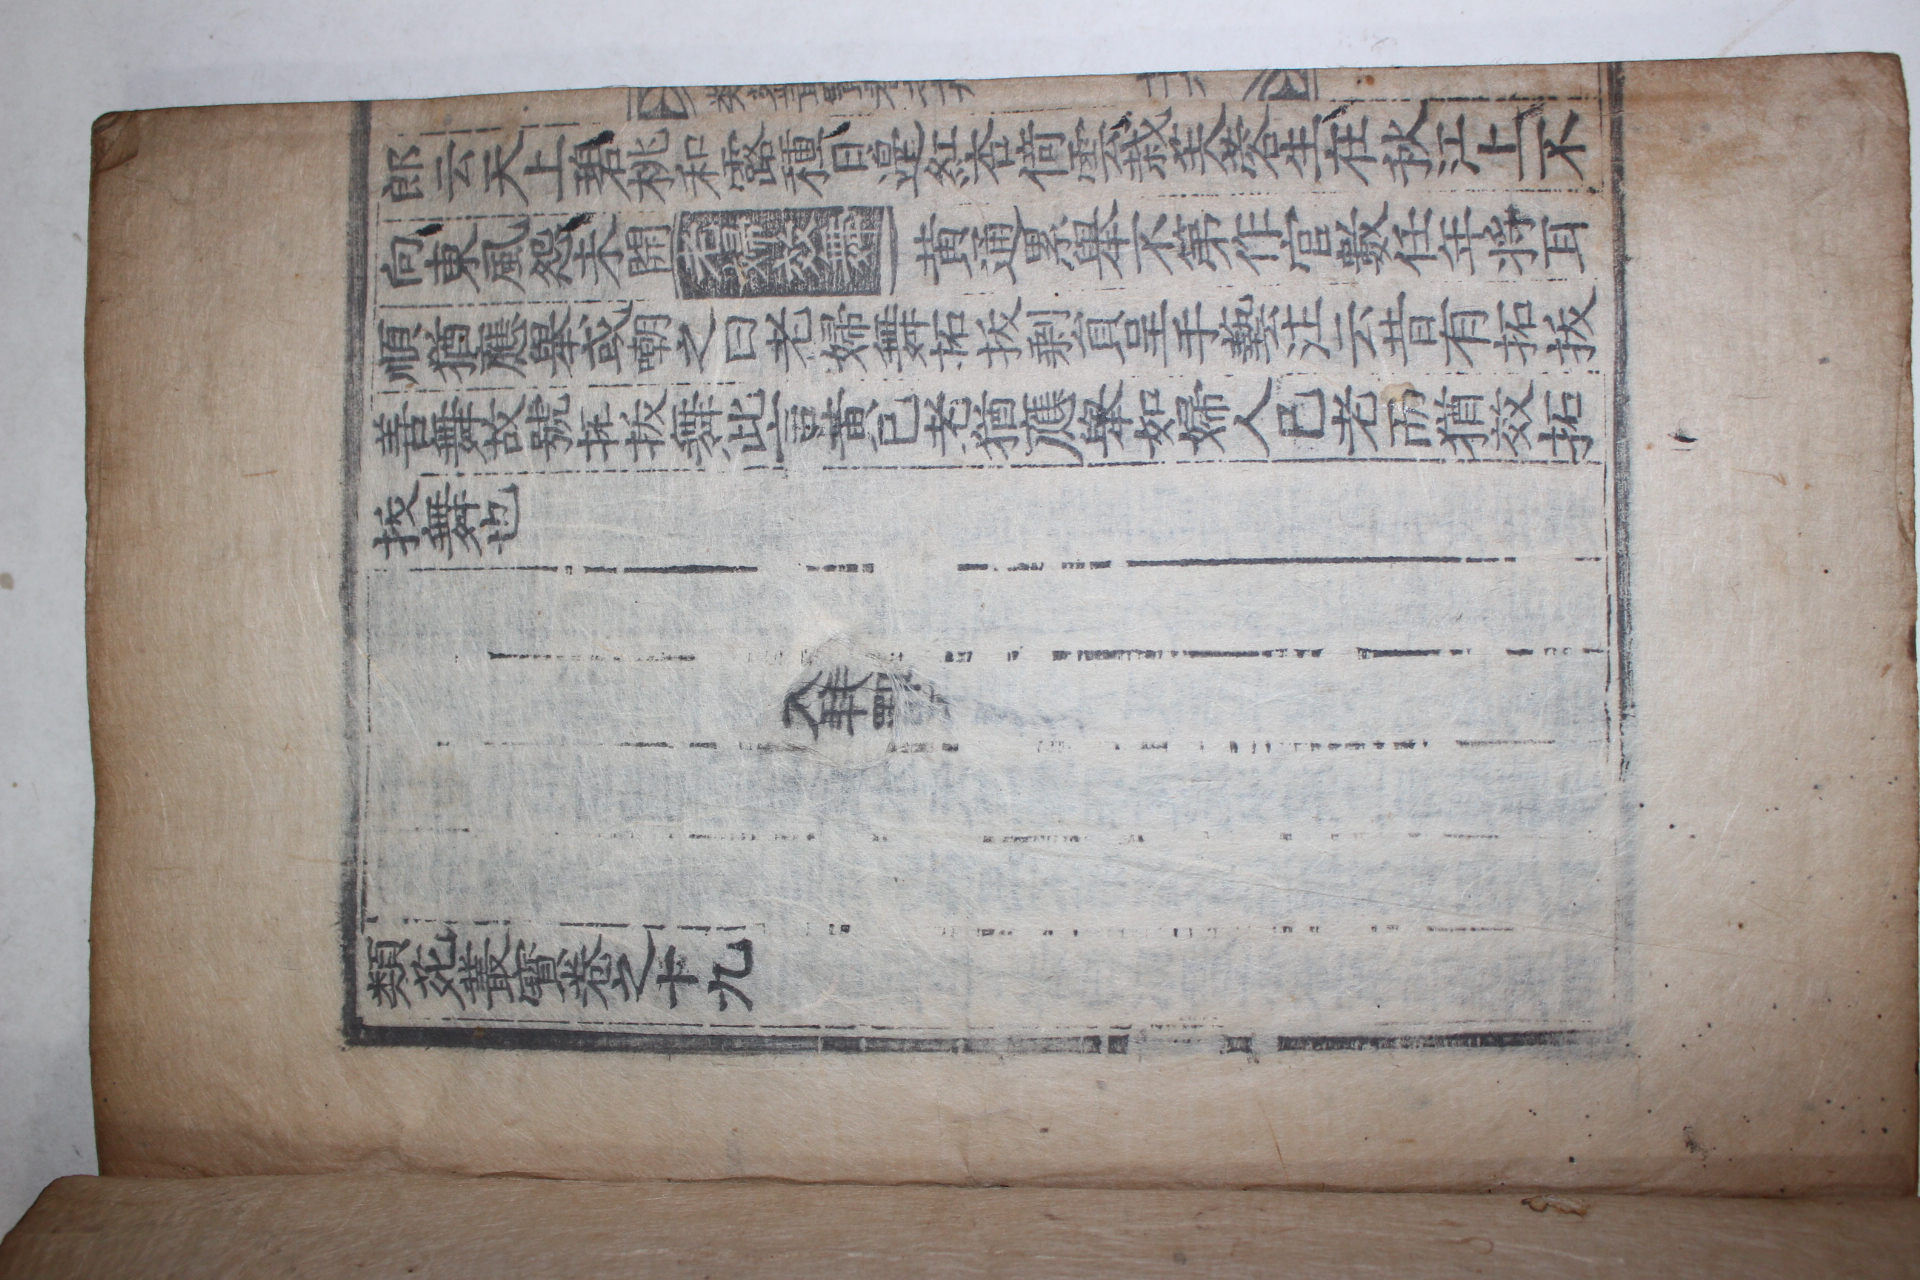 郎云天上碧桃和露種日邊紅杏倚雲栽芙蓉生在秋江上不
向東風怨未開老婦效舞黃通累舉不第作官數任年將耳
順猶應舉或嘲之曰老婦舞拓拔剩員呈手藝注云昔有拓拔
善舞故號拓拔舞此言黃已老猶應舉如婦人已老而猶效拓
拔舞也
類苑叢寶卷之十九